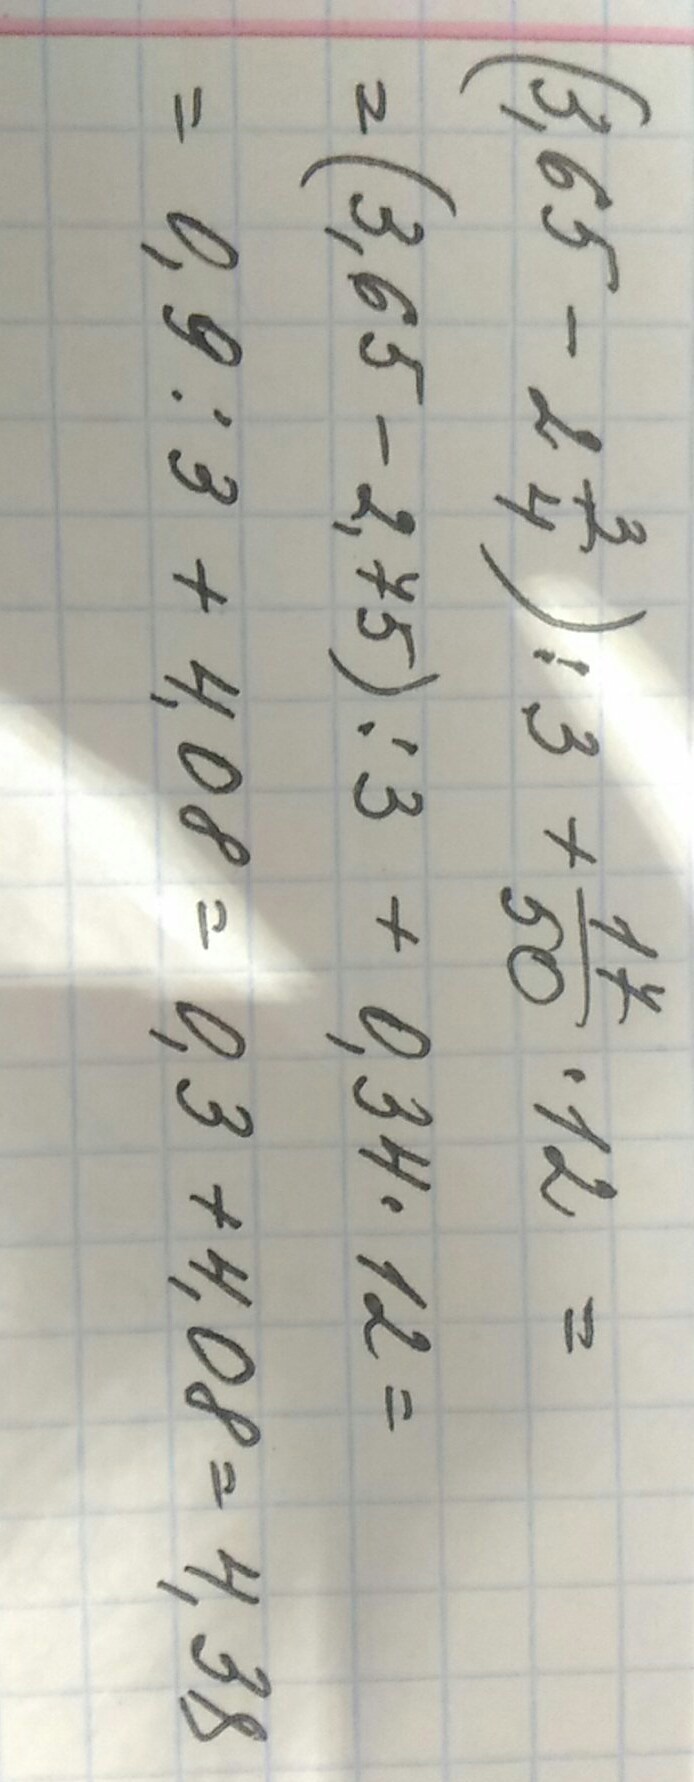 (3,65 - 2 3/4) : 3 + 17/50 · 12 =
= (3,65 - 2,75) : 3 + 0,34 · 12 =
= 0,9 : 3 + 4,08 = 0,3 + 4,08 = 4,38